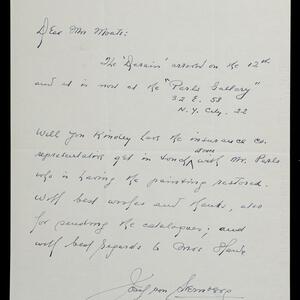 Dear Mr. Moate:
The 'Derain' arrived on the 12th
and it is now at the "Perls Gallery"
32 E. 58
N.Y. City. 22
Will you kindly have the insurance co.
representative get in touch down with Mr. Perls
who is having the painting restored.
With best wishes and thanks, also
for sending the catalogues; and
with best regards to Mrs.
Josef von Sternberg